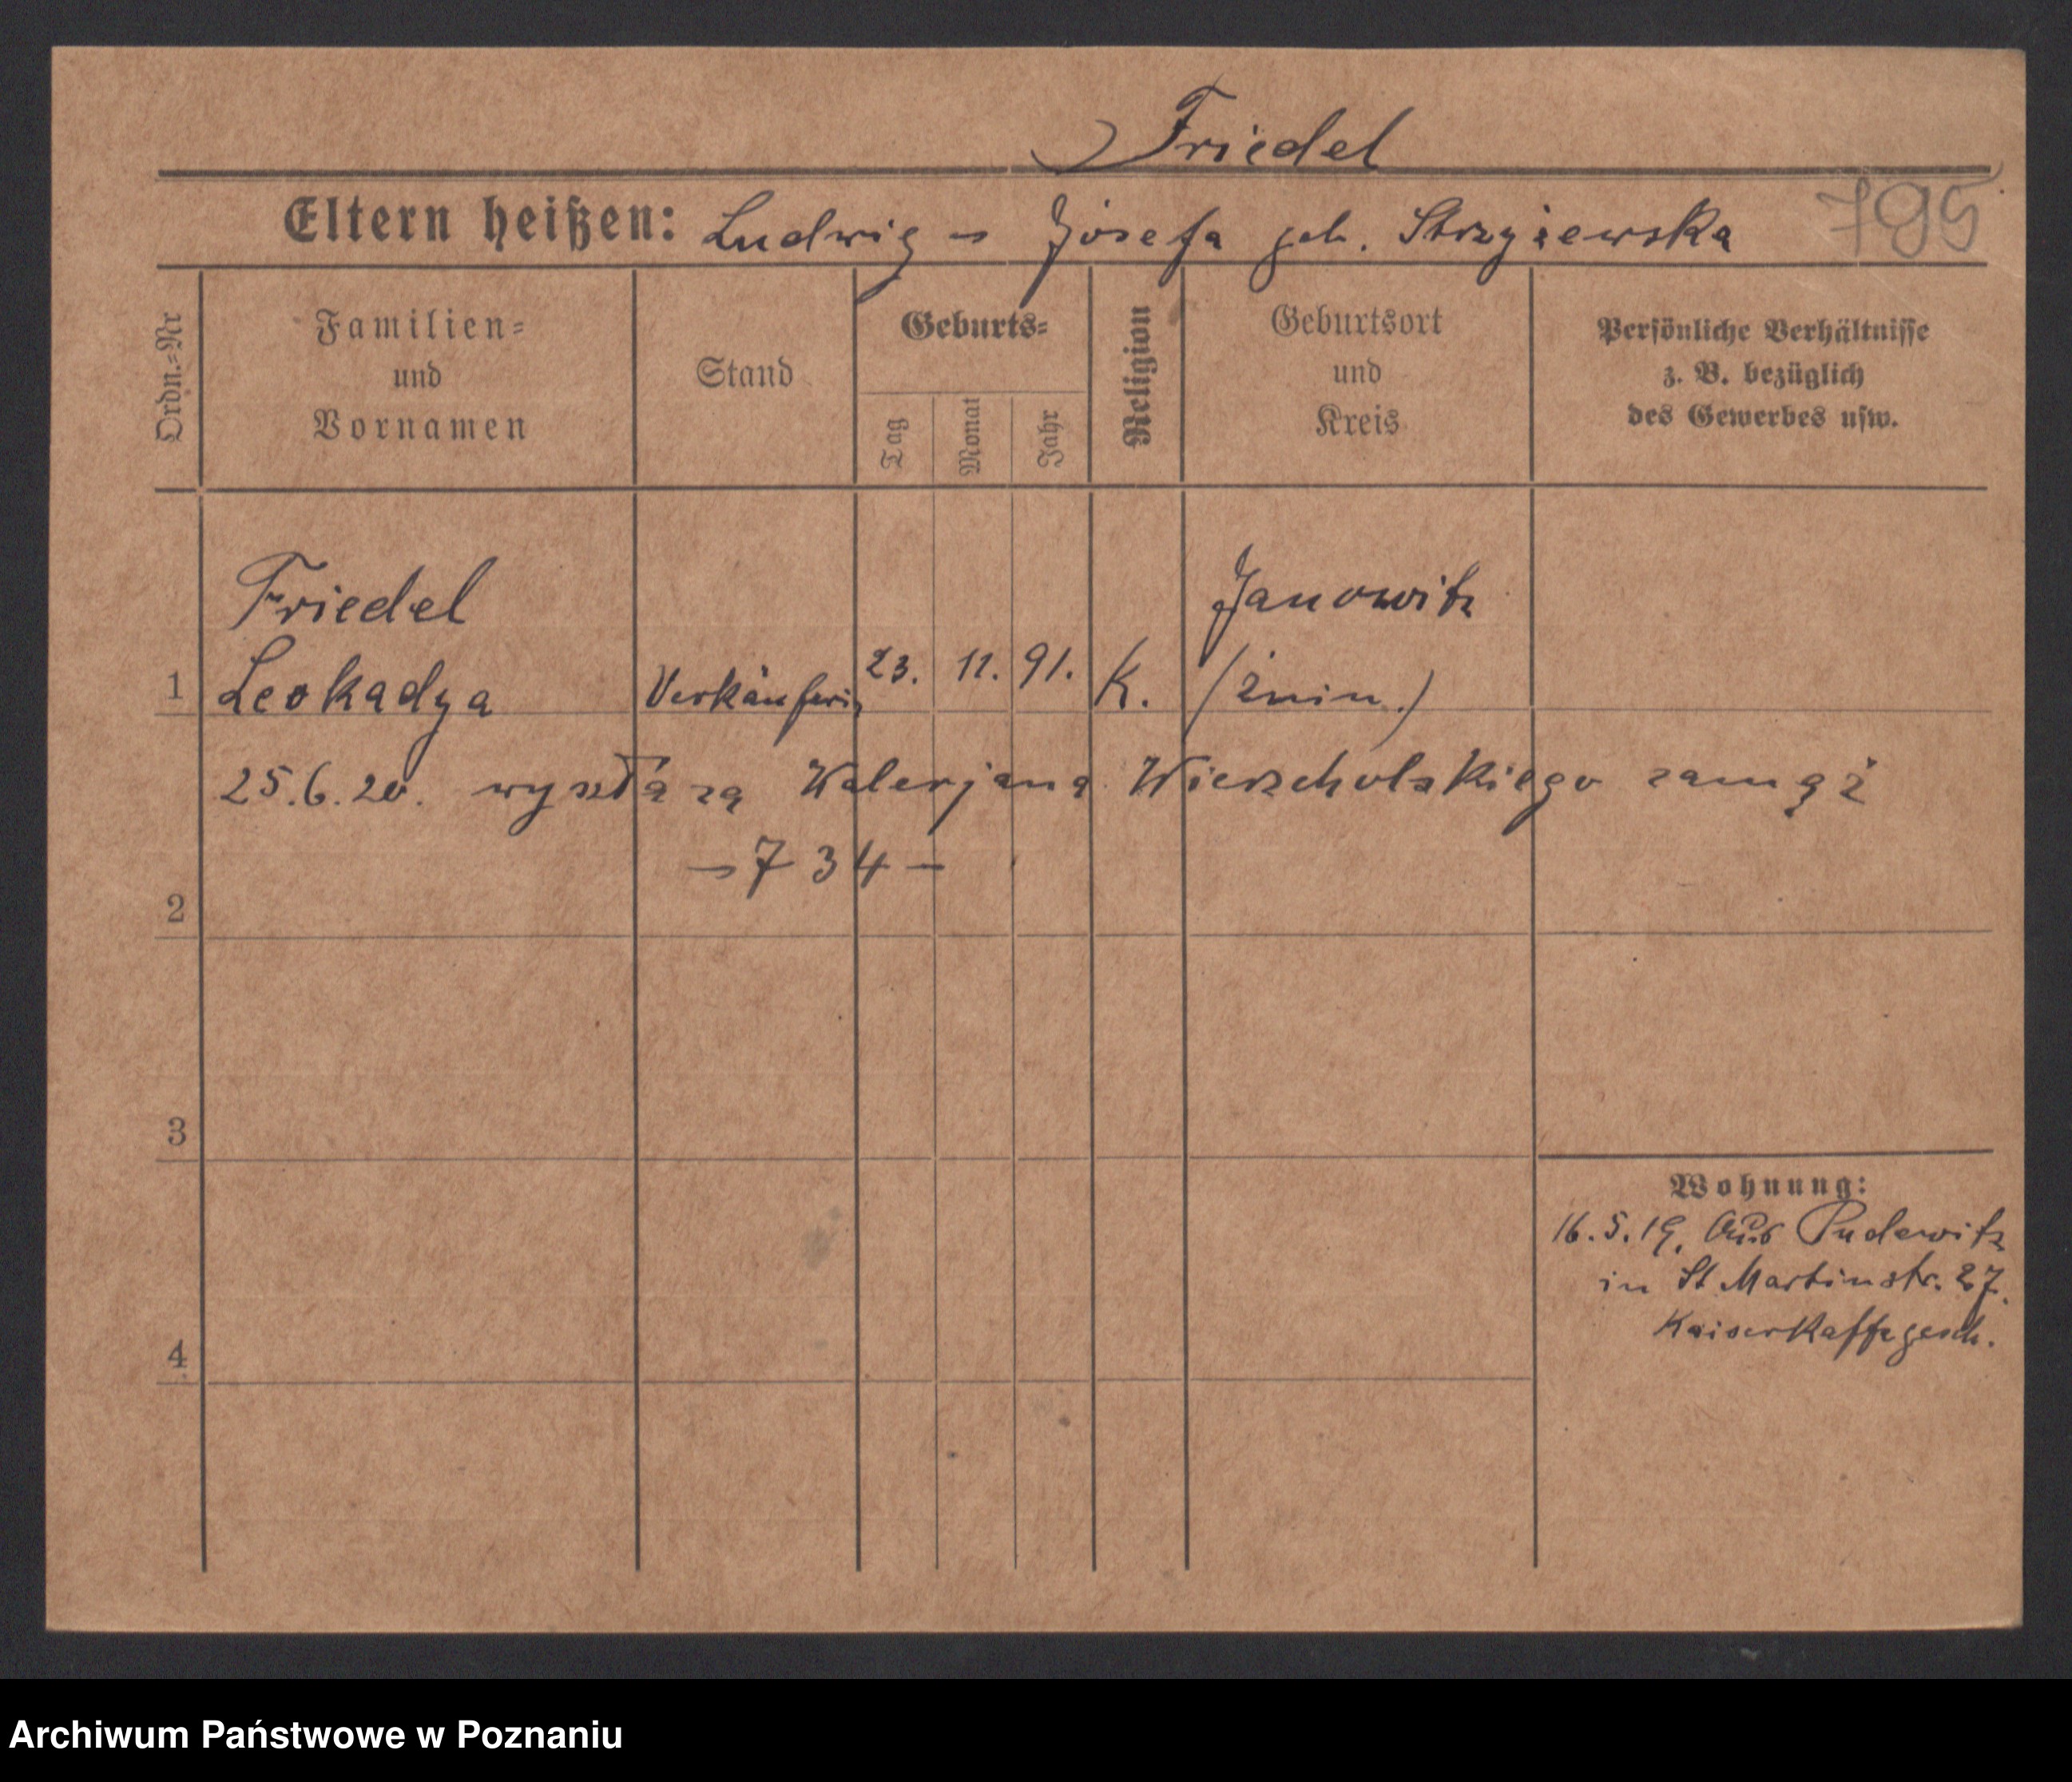 Friedel
795
Eltern heißen: Ludwig - Józefa geb. Strzyżewska
Ordn.=Nr
Familien=
und
Vornamen
Stand
Geburts=
Tag
Monat
Jahr
Religion
Geburtsort
und
Kreis
Persönliche Verhältnisse
z. B. bezüglich
des Gewerbes usw.
1
Friedel
Leokadya
Verkäuferin
23. 11. 91.
K.
Janowitz
(Żnin.)
25.6.20. wyszła za Walerjana Wierzcholskiego zamąż
- 734 -
2
3
4
Wohnung:
16.5.19. Aus Pudewitz
in St Martinstr. 27.
Kaiserkaffegesch.
Archiwum Państwowe w Poznaniu